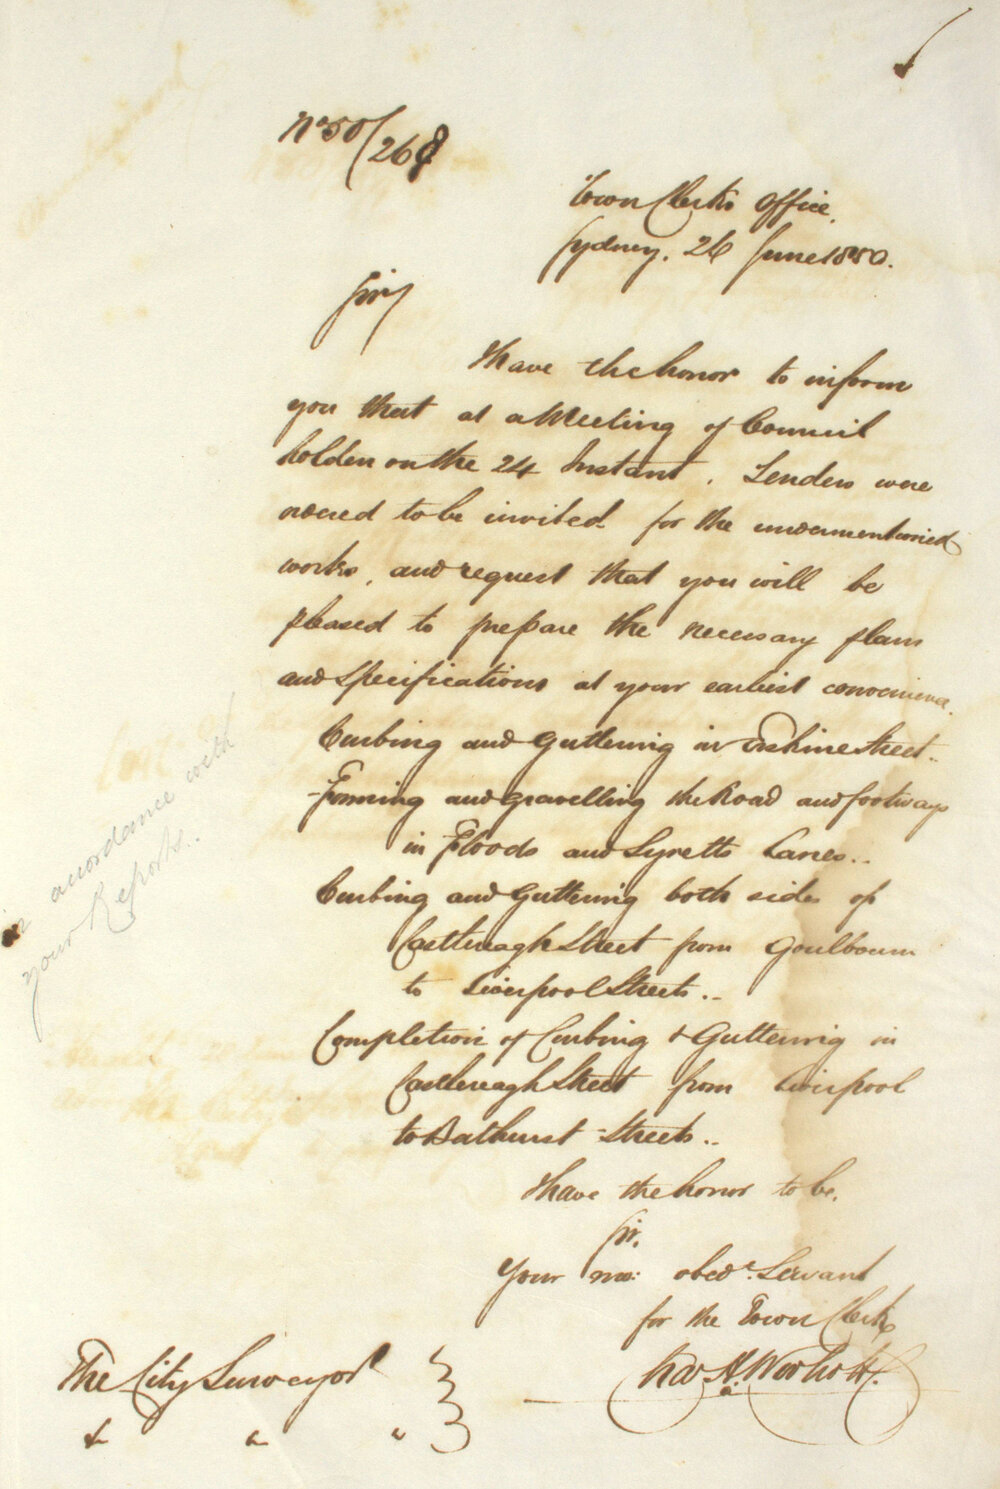 No 50/268
Town Clerk's Office,
Sydney, 26 June 1850.
Sir,
I have the honor to inform
you that at a Meeting of Council
holden on the 24 Instant, Tenders were
ordered to be invited for the undermentioned
works, and request that you will be
pleased to prepare the necessary plans
and Specifications at your earliest convenience.
Curbing and Guttering in Erskine Street..
Forming and gravelling the Road and footways
in Floods and Lyretts Lanes..
Curbing and Guttering both sides of
Castlereagh Street from Goulbourn
to Liverpool Streets..
Completion of Curbing & Guttering in
Castlereagh Street from Liverpool
to Bathurst Streets..
I have the honor to be,
Sir,
Your mo: obedt. Servant
for the Town Clerk
Chas H. Woolcott.
The City Surveyor
& " "
in accordance with
your Reports..